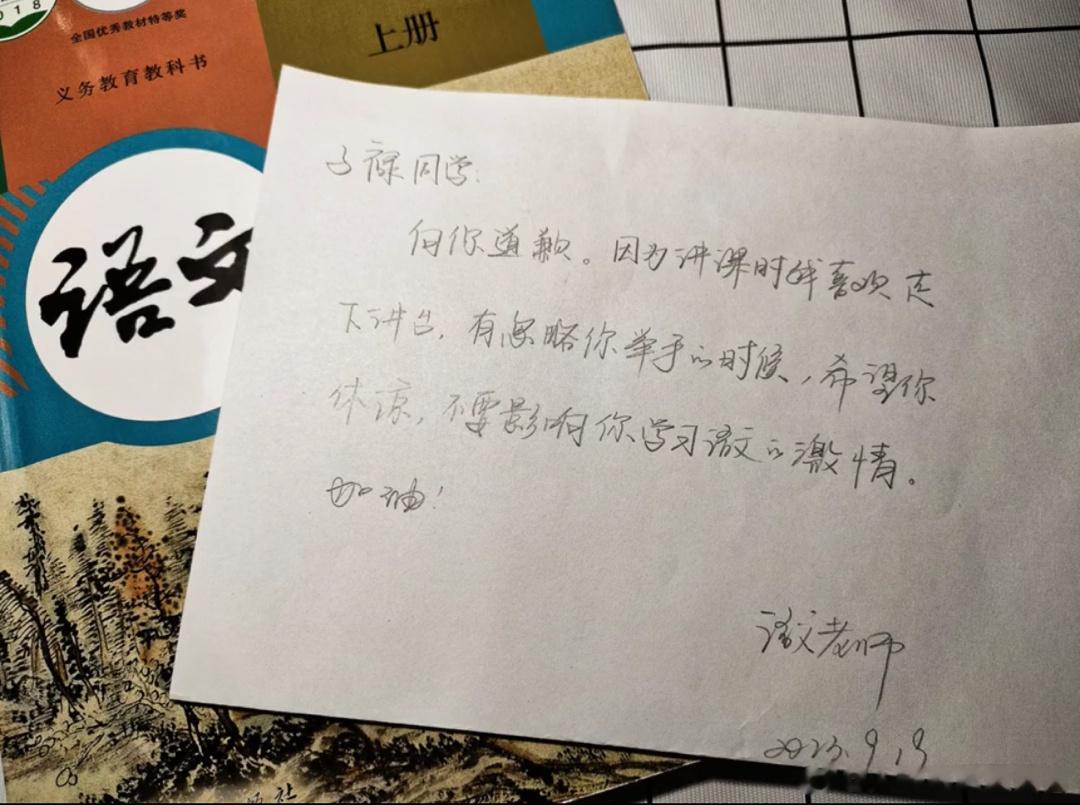 2018
全国优秀教材特等奖
义务教育教科书
上册
语文
子禄同学:
向你道歉。因为讲课时我喜欢走
下讲台,有忽略你举手的时候,希望你
体谅,不要影响你学习语文的激情。
加油!
语文老师
2023.9.19
版社